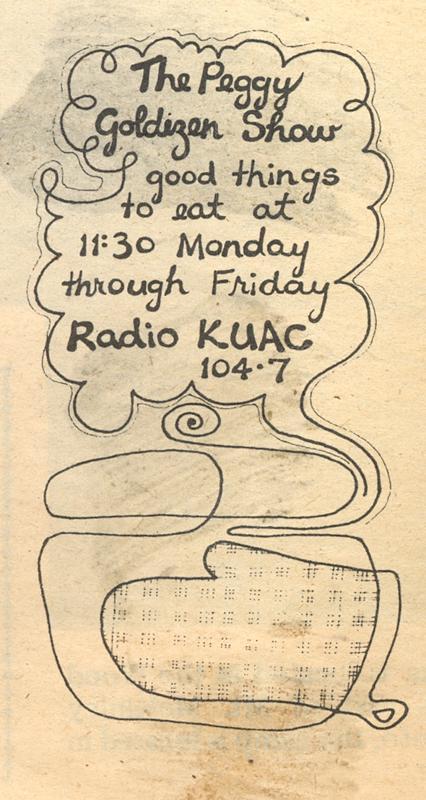 The Peggy
Goldizen Show
good things
to eat at
11:30 Monday
through Friday
Radio KUAC
104.7